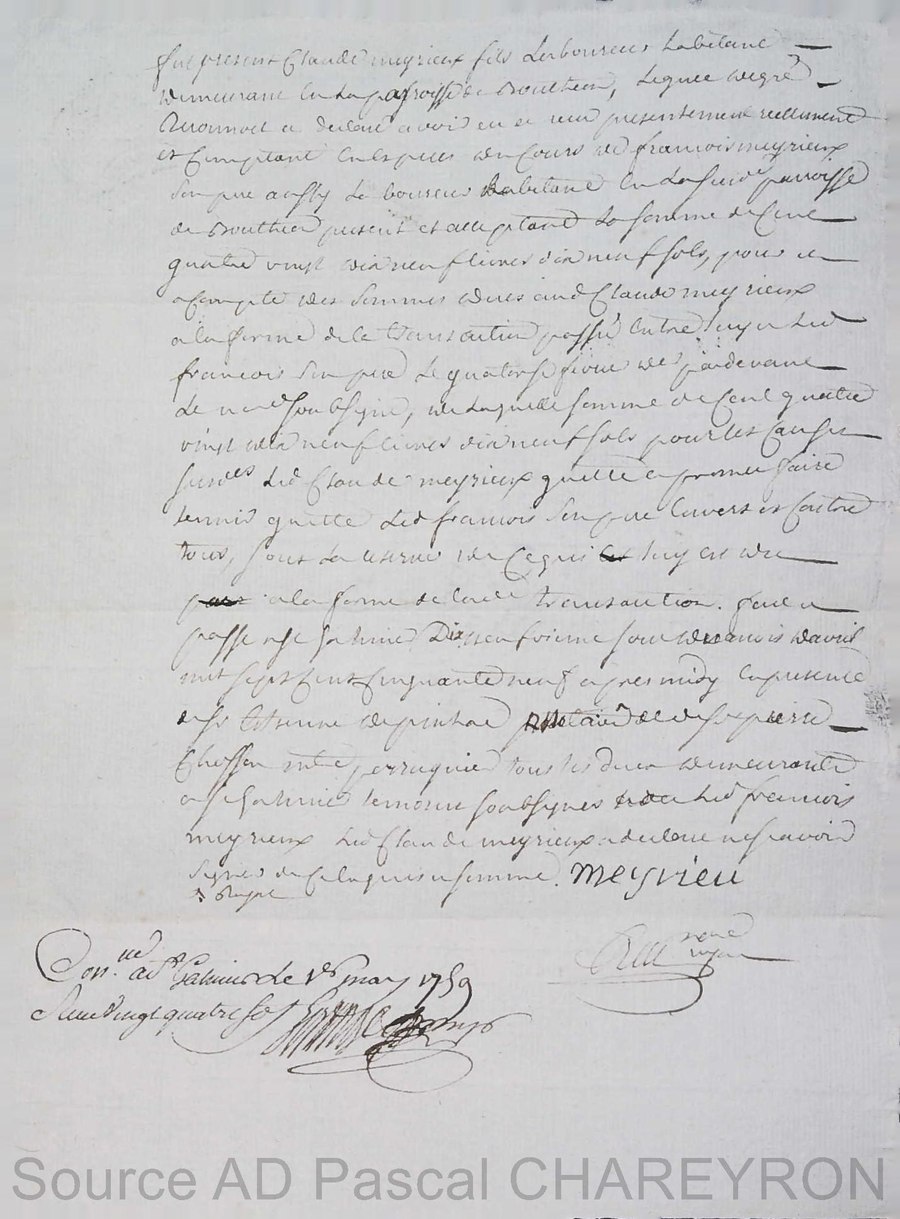 fut present Claude meyrieux fils Laboureur habitant
demeurant en la parroisse de Bouthéon, Lequel de gré
a declaré avoir eu et receu presentement reellement
et Comptant en especes du Cours de francois meyrieux
son pere aussy Laboureur habitant en La susd parroisse
de Bouthéon present et acceptant La somme de Cent
quatre vingt dix neuf livres dix neuf sols, pour et
a Compte des sommes dues aud Claude meyrieux
a la forme de la transaction passé entre luy et Led
francois son pere Le quatorse pardevant
Le no^re soubsigné, de Laquelle somme de Cent quatre
vingt dix neuf livres dix neuf sols pour les Causes
susd^es Led Claude meyrieux quitte et promet faire
tenir quitte Led francois son pere envers et Contre
tous, sous La reserve de Ce qui luy est du
a la forme de lad^e transaction. fait et
passé a S^t Galmier Dix neufvieme jour du mois davril
mil sept Cent Cinquante neuf apres midy en presence
de s^r Etienne depinhac et de s^r pierre
Chosson m^tre perruquier tous les deux demeurants
a S^t Galmier temoins soubsignés avec Led francois
meyrieux Led Claude meyrieux a declaré ne scavoir
signer de Ce enquis et sommé. meyrieu
Con^lé a S^t Galmier Le 1^er may 1759
Receu vingt quatre sols